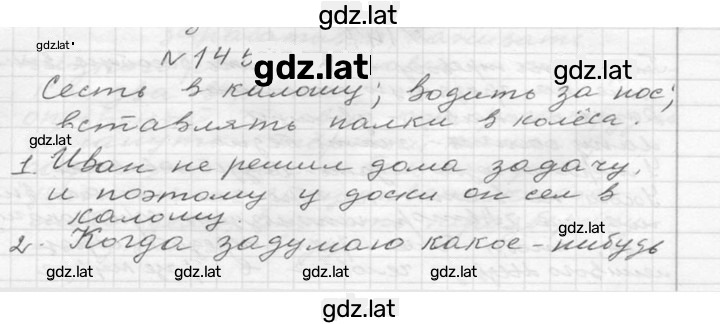 gdz.lat
gdz.lat
№ 14
gdz.lat
gdz.lat
Сесть в калошу; водить за нос;
вставлять палки в колёса.
gdz.lat
1 Иван не решил дома задачу,
и поэтому у доски он сел в
калошу.
gdz.lat
2. Когда задумаю какое-нибудь
gdz.lat gdz.lat gdz.lat gdz.lat
gdz.lat